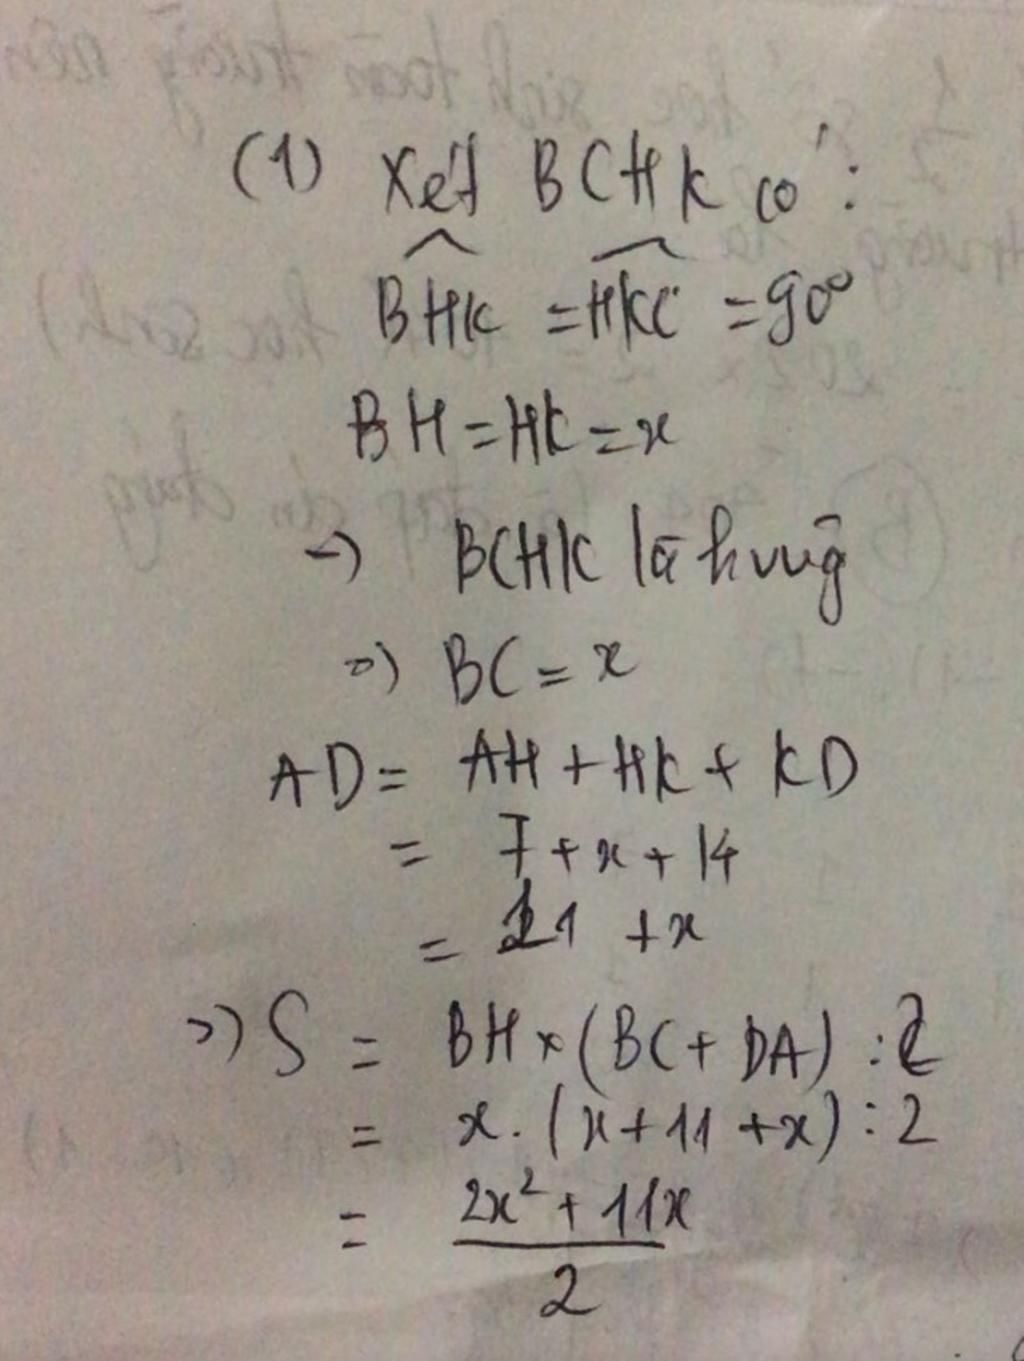 (1) Xét BCHK có:
BHK = HKC = 90°
BH = HK = x
→ BCHK là hvug
=) BC = x
AD = AH + HK + KD
= 7 + x + 14
= 21 + x
=) S = BH x (BC + DA) : 2
= x. (x + 11 + x) : 2
= 2x² + 11x
2